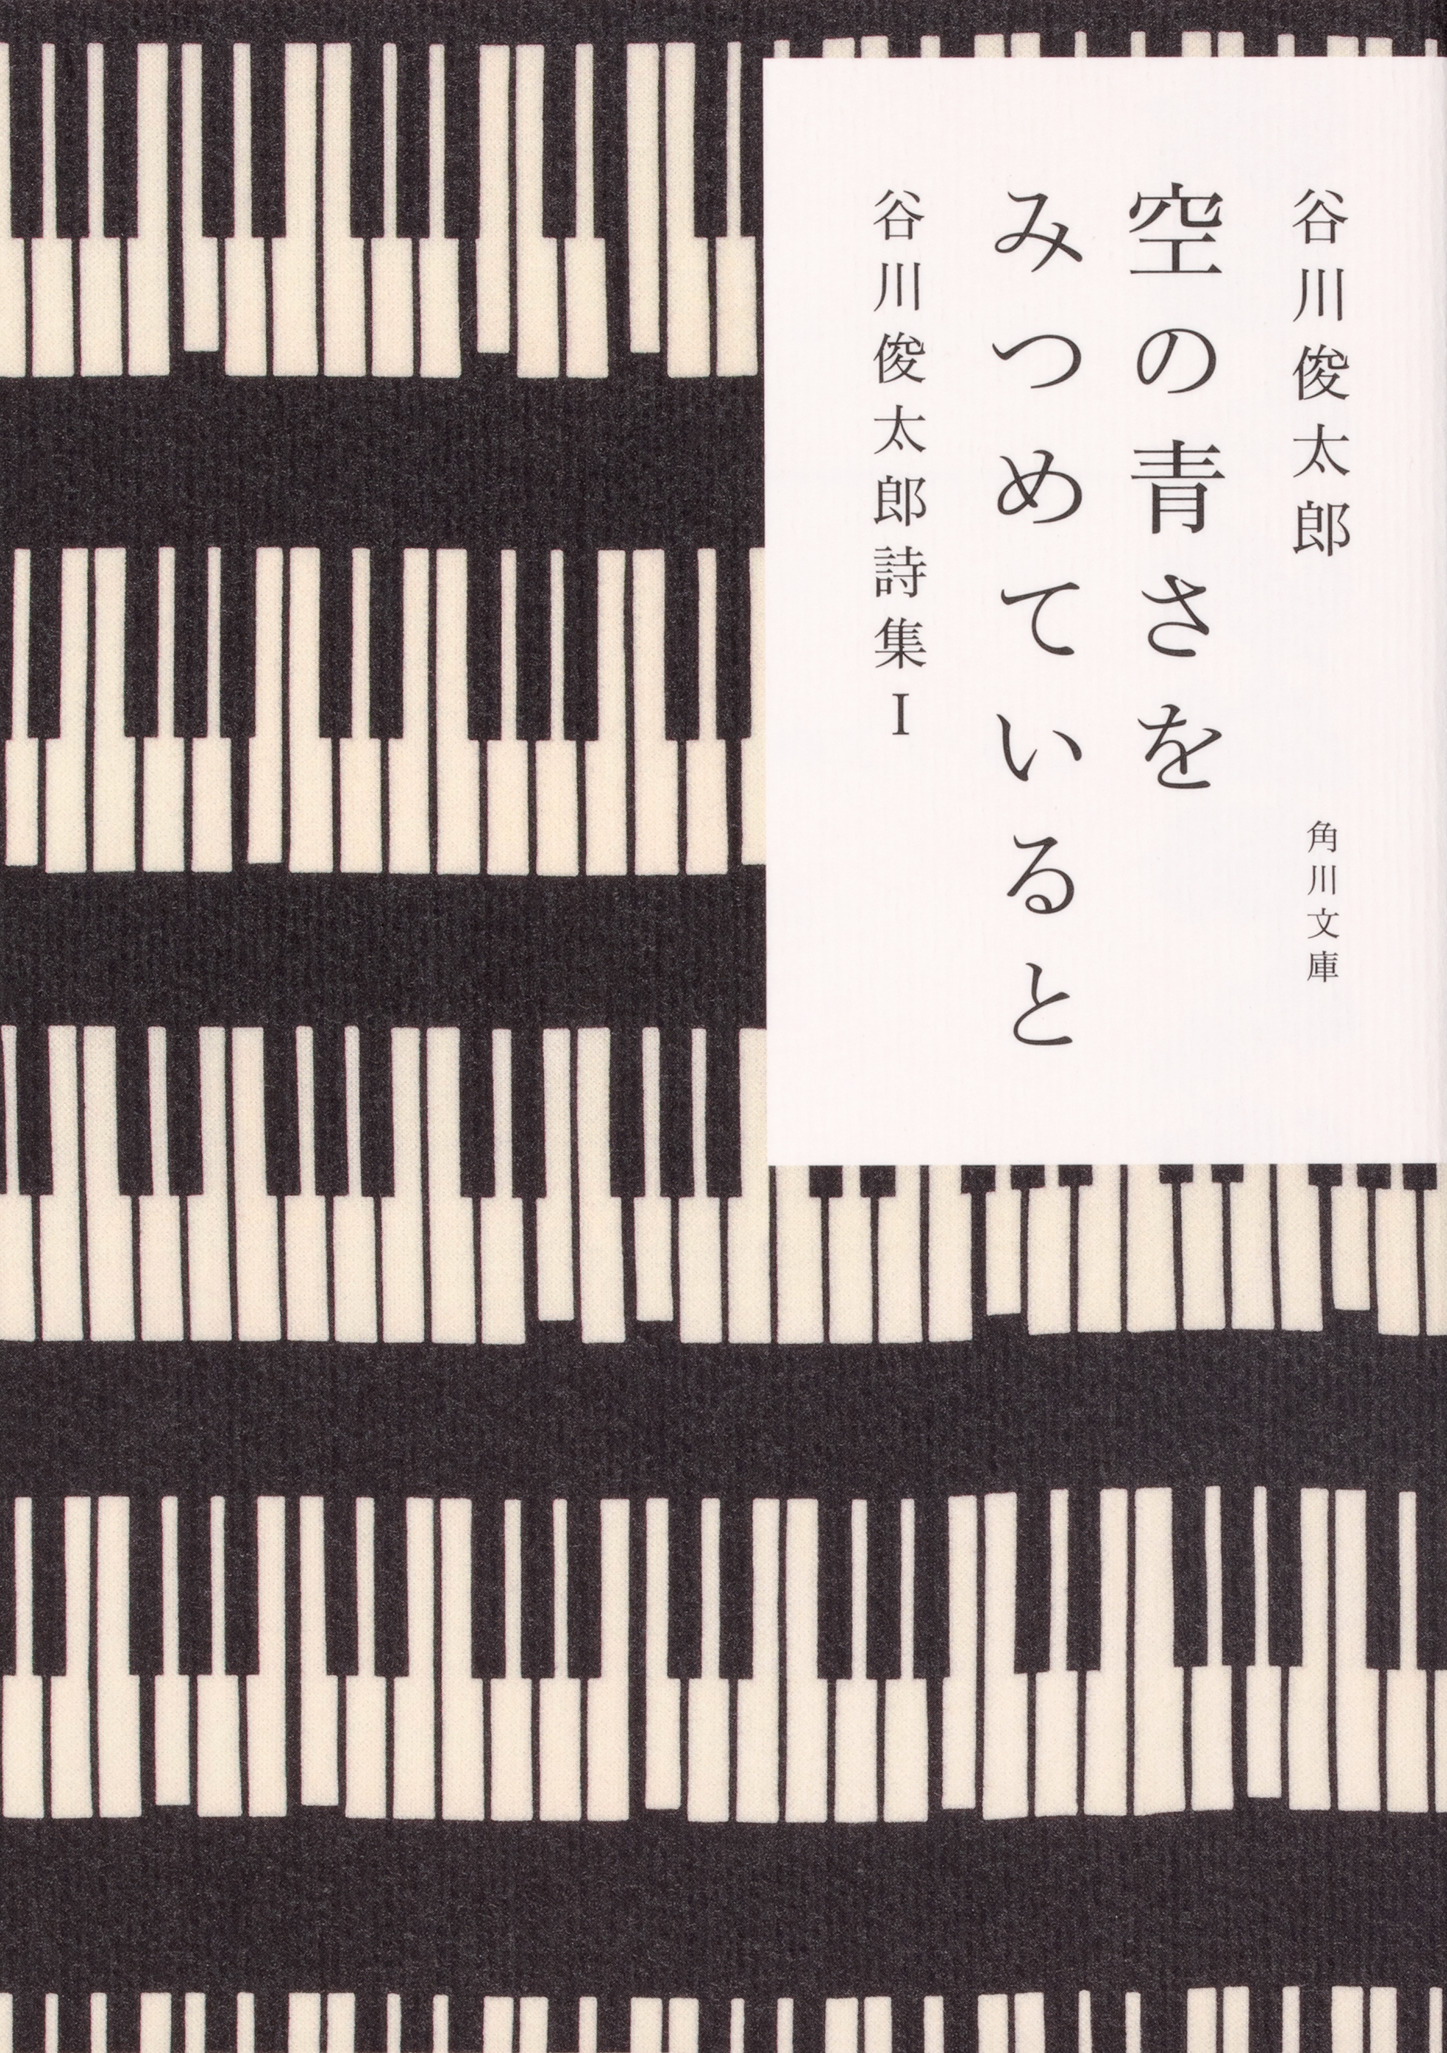 谷川俊太郎
角川文庫
空の青さを
みつめていると
谷川俊太郎詩集I